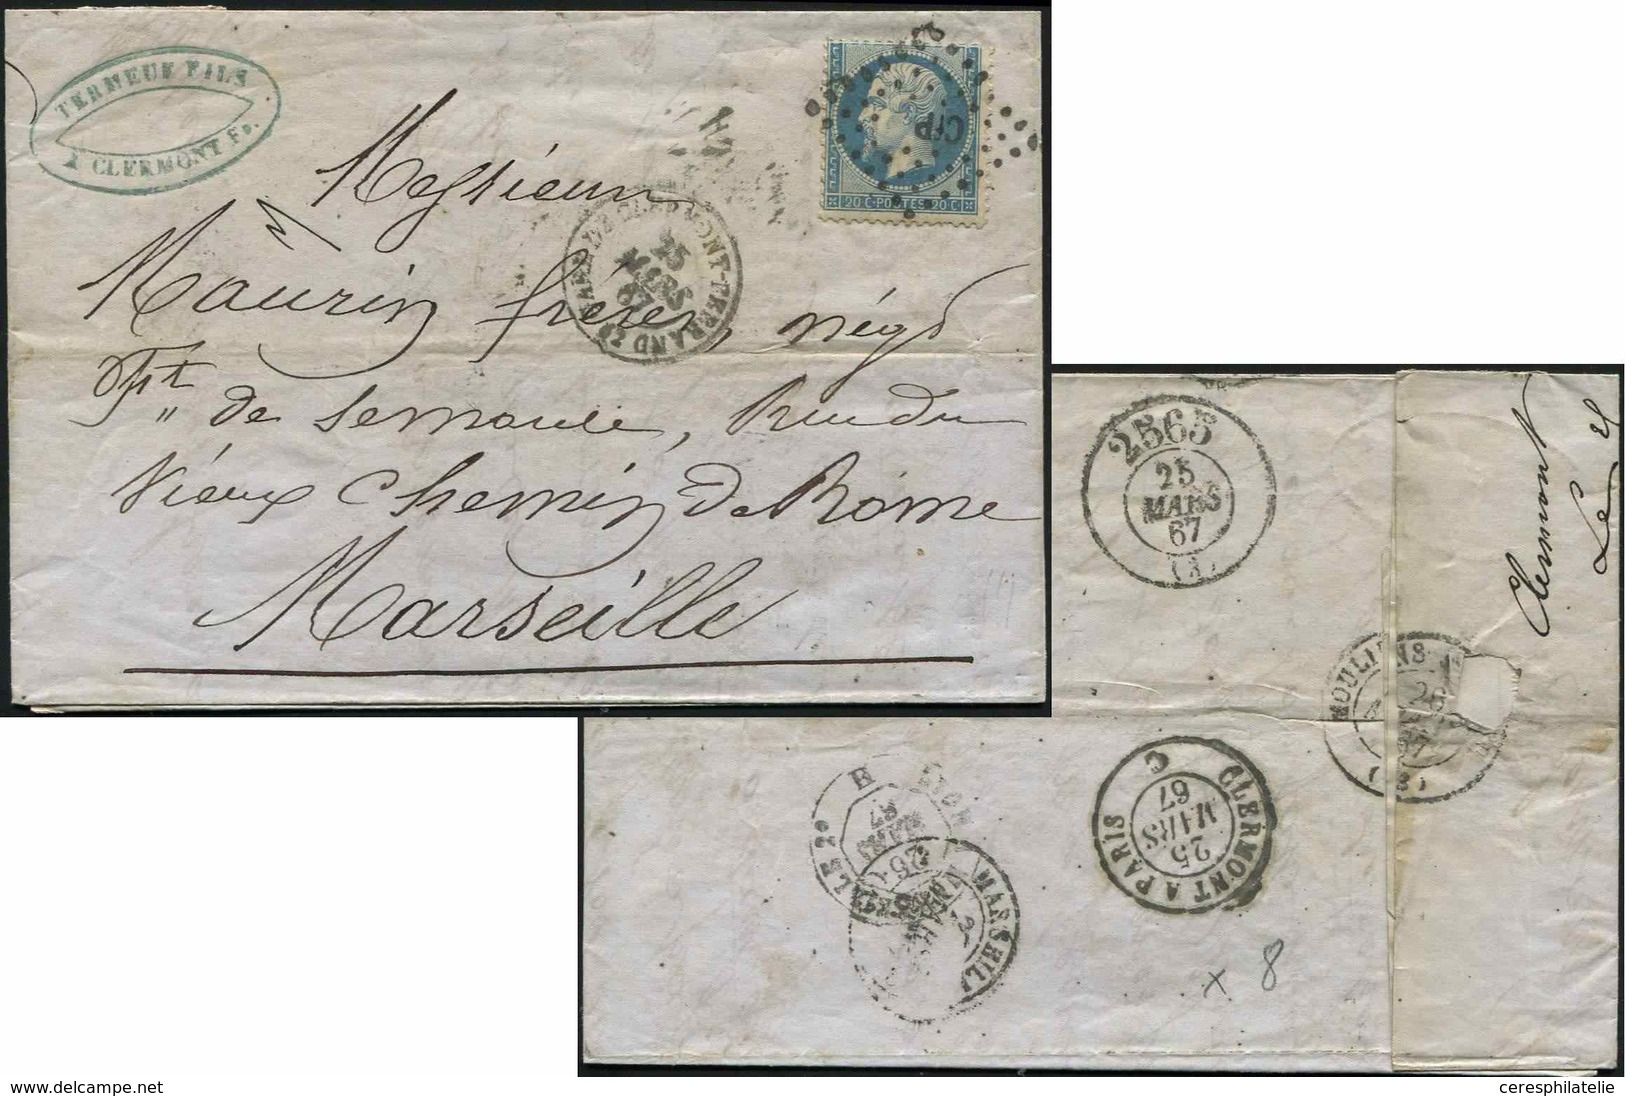 TERNEUF FILS
A CLERMONT Fd.
20 C·POSTES·20 C
CfP
GARE DE CLERMONT-FERRAND
25
MARS
67
Messieurs
Maurin frères, négts
Fts de semoule, Rue du
Vieux Chemin de Rome
Marseille
2565
25
MARS
67
(3)
Clermont
Le 25
MOULINS
26
67
CLERMONT A PARIS
C
25
MARS
67
E
LYON
MARS
67
26
MARSEILLE
x 8
www.delcampe.net
ceresphilatelie